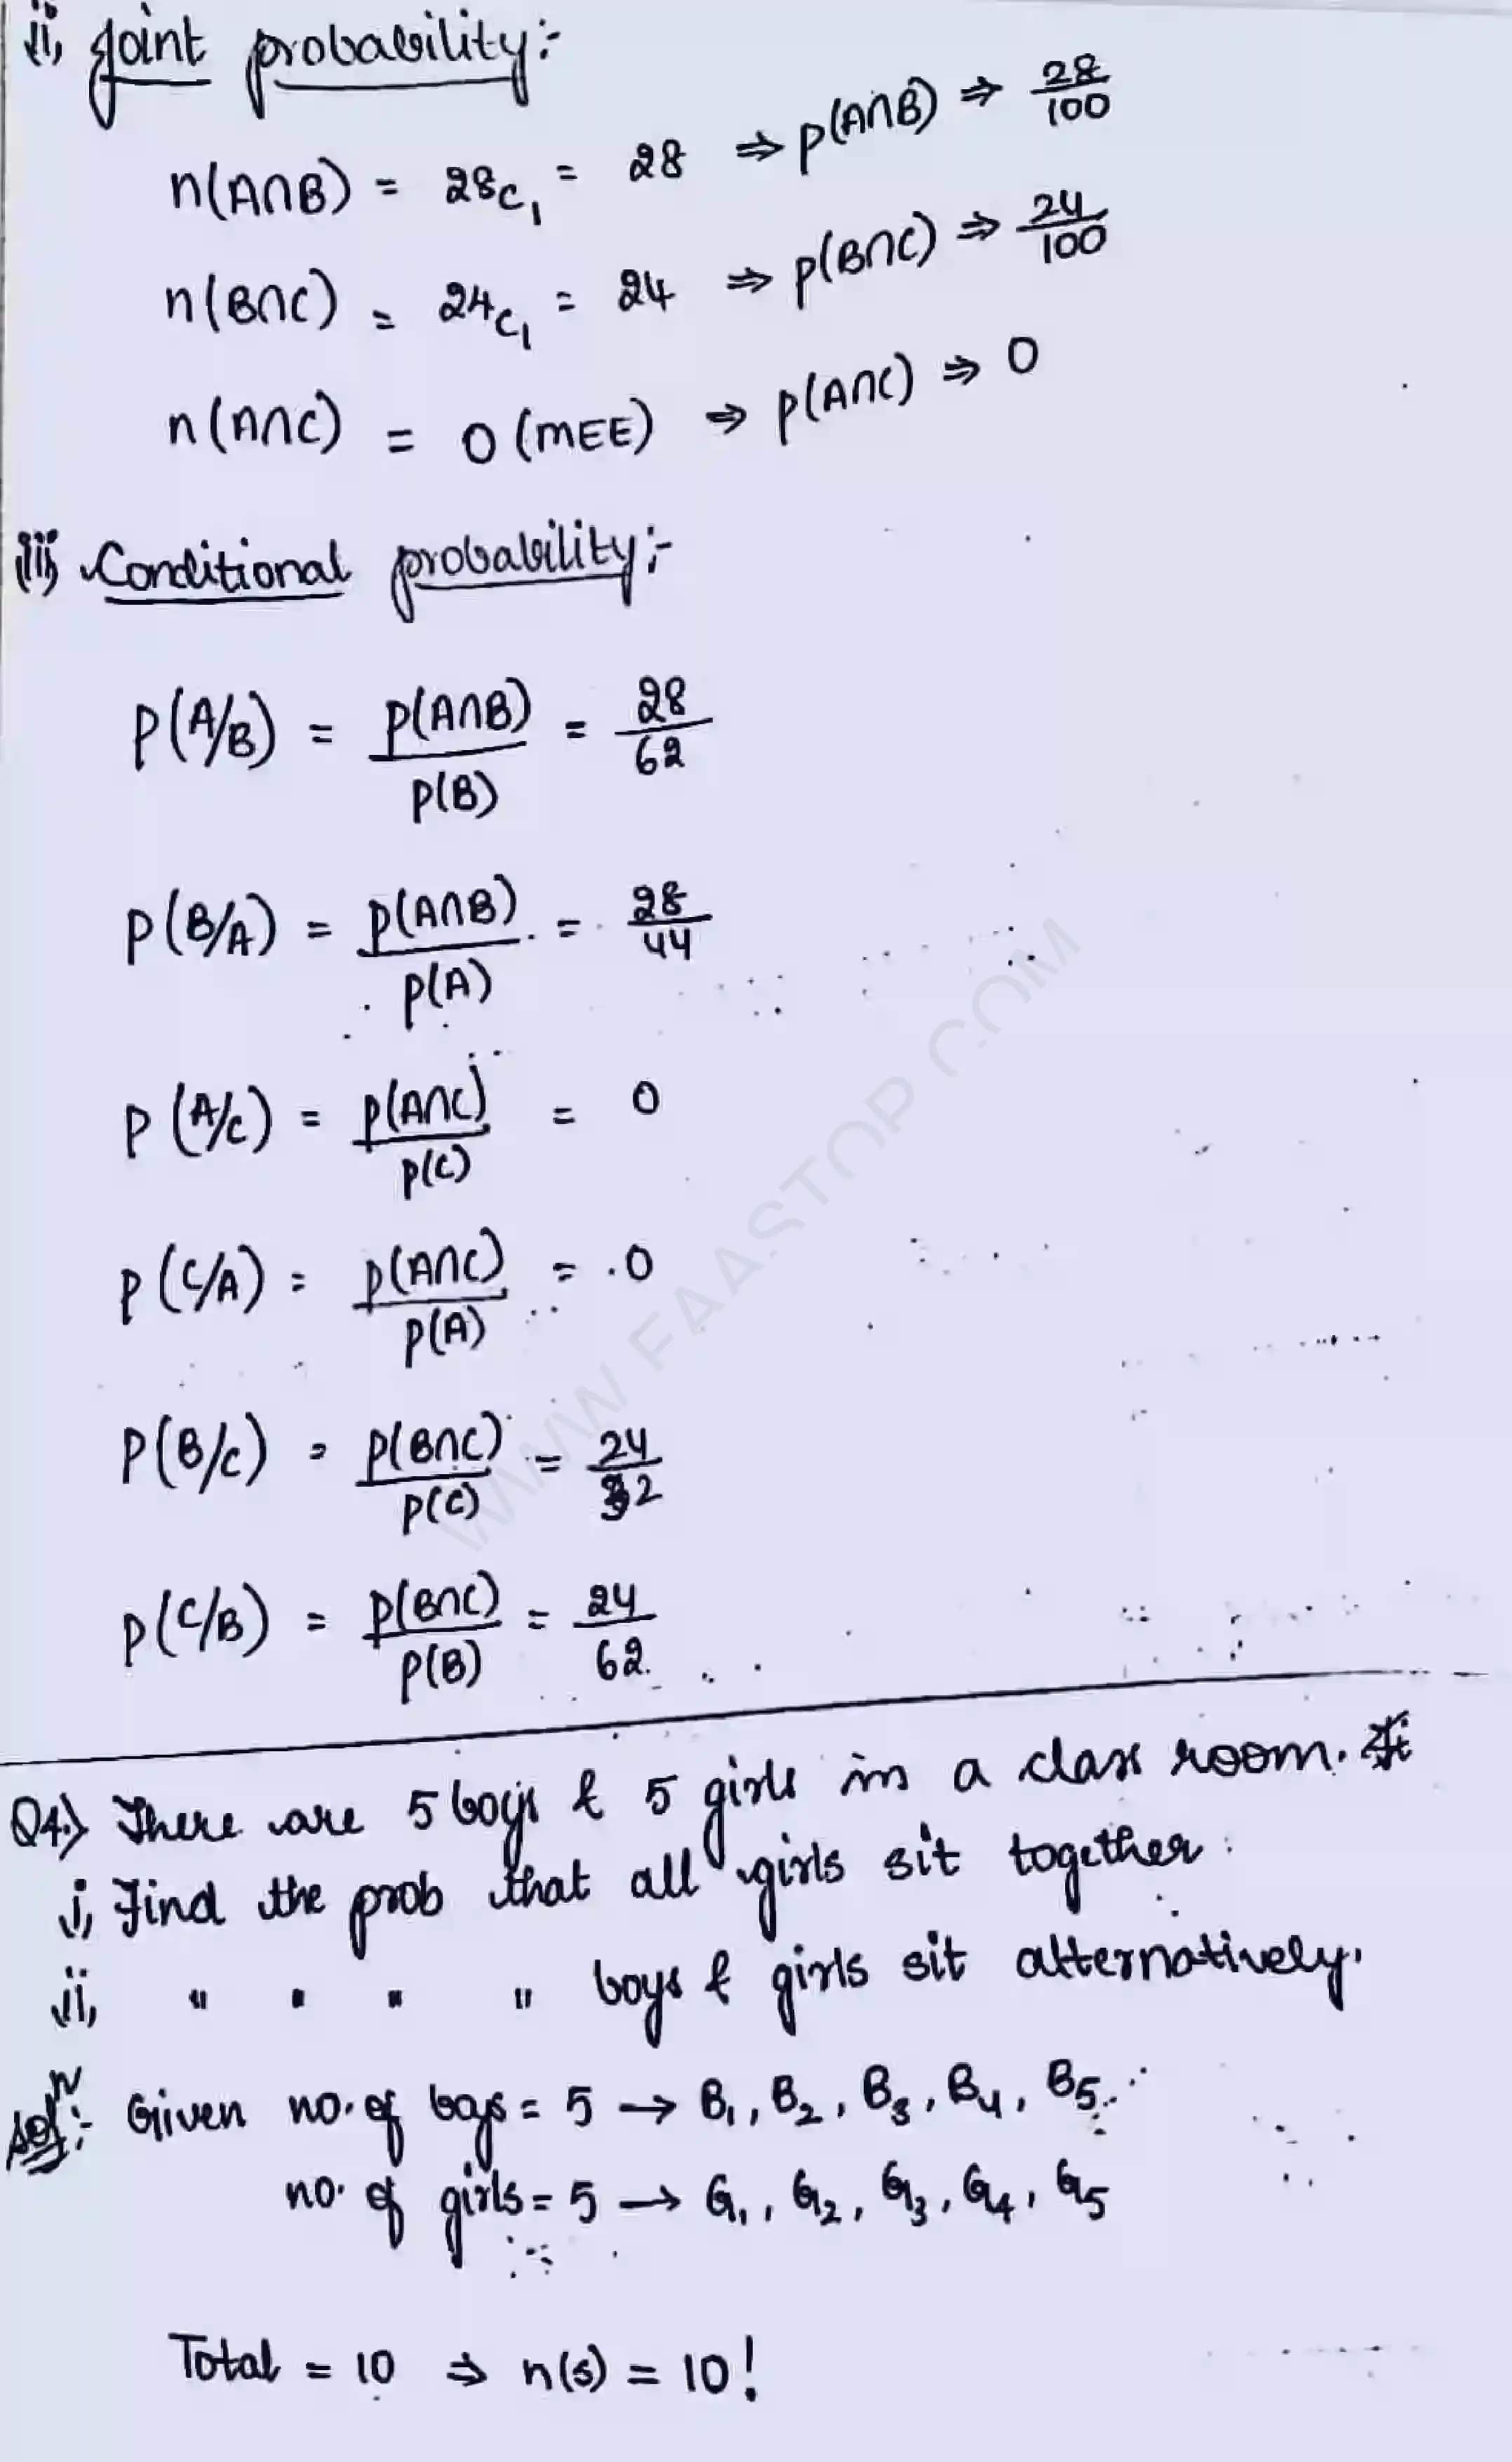 ii, Joint probability:-
n(A∩B) = 28c₁ = 28 ⇒ p(A∩B) ⇒ 28/100
n(B∩C) = 24c₁ = 24 ⇒ p(B∩C) ⇒ 24/100
n(A∩C) = 0 (MEE) ⇒ p(A∩C) ⇒ 0
iii, Conditional probability:-
P(A/B) = p(A∩B)/p(B) = 28/62
P(B/A) = p(A∩B)/p(A) = 28/44
P(A/C) = p(A∩C)/p(C) = 0
P(C/A) = p(A∩C)/p(A) = 0
P(B/C) = p(B∩C)/p(C) = 24/32
P(C/B) = p(B∩C)/p(B) = 24/62
Q4.) There are 5 boys & 5 girls in a class room.
i, Find the prob that all girls sit together.
ii, " " " " boys & girls sit alternatively.
Solⁿ:- Given no. of boys = 5 → B₁, B₂, B₃, B₄, B₅
no. of girls = 5 → G₁, G₂, G₃, G₄, G₅
Total = 10 ⇒ n(s) = 10!
WWW.FAASTOP.COM